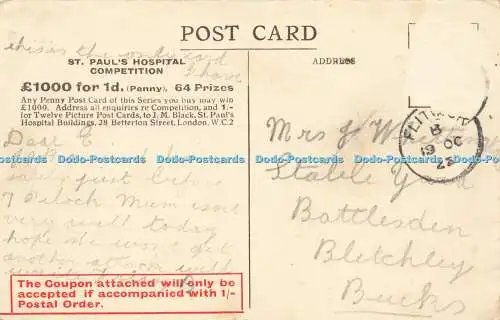 POST CARD
this is the only card
I have
ST. PAUL'S HOSPITAL
COMPETITION
£1000 for 1d. (Penny). 64 Prizes
Any Penny Post Card of this Series you buy may win
£1000. Address all enquiries re Competition, and 1/-
for Twelve Picture Post Cards, to J. M. Black, St. Paul's
Hospital Buildings, 28 Betterton Street, London, W.C.2
Dear E.
just before
7 o'clock Mum isnt
very well today
hope she wont get
another attack
The Coupon attached will only be
accepted if accompanied with 1/-
Postal Order.
ADDRESS
Mrs J
Stable Yard
Battlesden
Bletchley
Bucks
FLITWICK
B
19 OC
23
www.historia-pictures.com
www.historia-pictures.com
www.historia-pictures.com